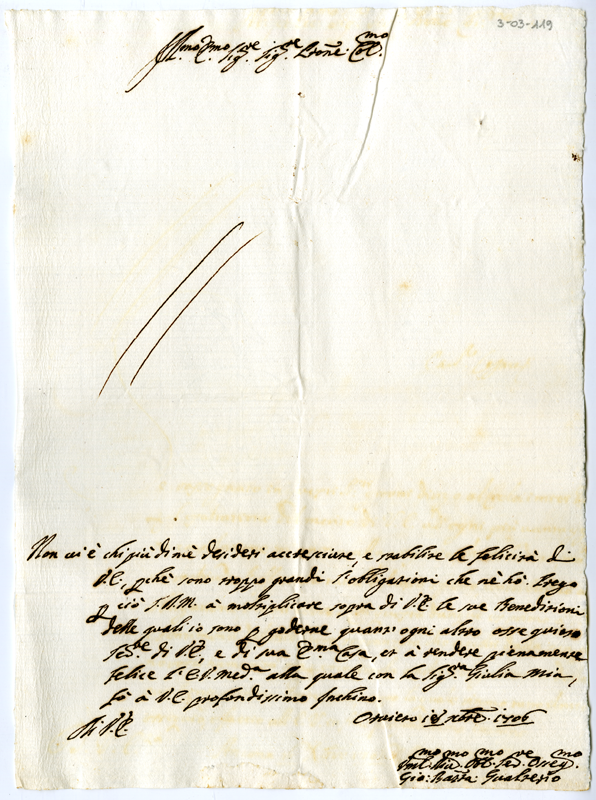 3-03-119
Ill.mo Ecc.mo Sig.re Sig.re P'rone Col.mo
Non vi è chi più di mè desideri accresciute, e stabilite le felicità di
V.E., p'chè sono troppo grandi l'obligazioni che nè hò. Prego
p' ciò S.D.M. à moltiplicare sopra di V.E. le sue Benedizioni
delle quali io sono p' goderne quant'ogni altro ossequioso
Ser.re di V.E., e di sua Ecc.ma Casa, et à rendere pienamente
felice l'E.V. med.a alla quale con la Sig.ra Giulia Mia,
fò à V.E. profondissimo Inchino.
Di V.E. Orvieto Xbre 1706
Gio: Batta Gualterio